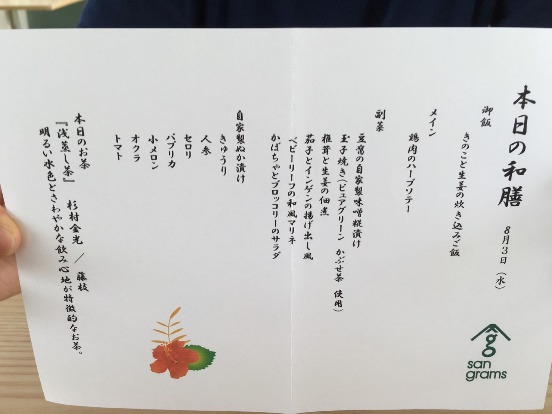 本日の和膳 8月3日（水）
御飯
きのこと生姜の炊き込みご飯
メイン
鶏肉のハーブソテー
副菜
豆腐の自家製味噌糀漬け
玉子焼き（ピュアグリーン かぶせ茶 使用）
椎茸と生姜の佃煮
茄子とインゲンの揚げ出し風
ベビーリーフの和風マリネ
かぼちゃとブロッコリーのサラダ
自家製ぬか漬け
きゅうり
人参
セロリ
パプリカ
小メロン
オクラ
トマト
本日のお茶
『浅蒸し茶』 杉村金光 ／ 藤枝
明るい水色とさわやかな飲み心地が特徴的なお茶。
g
san
grams